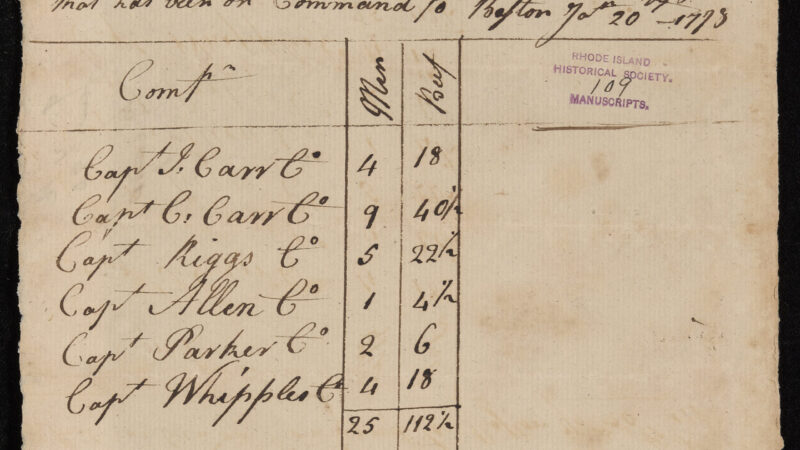 that has been on Command to Boston Jan 20th 1778
Compn Men Beef
RHODE ISLAND
HISTORICAL SOCIETY.
109
MANUSCRIPTS.
Capt J. Carr Co 4 18
Capt C. Carr Co 9 40½
Capt Riggs Co 5 22½
Capt Allen Co 1 4½
Capt Parker Co 2 6
Capt Whipples Co 4 18
25 112½